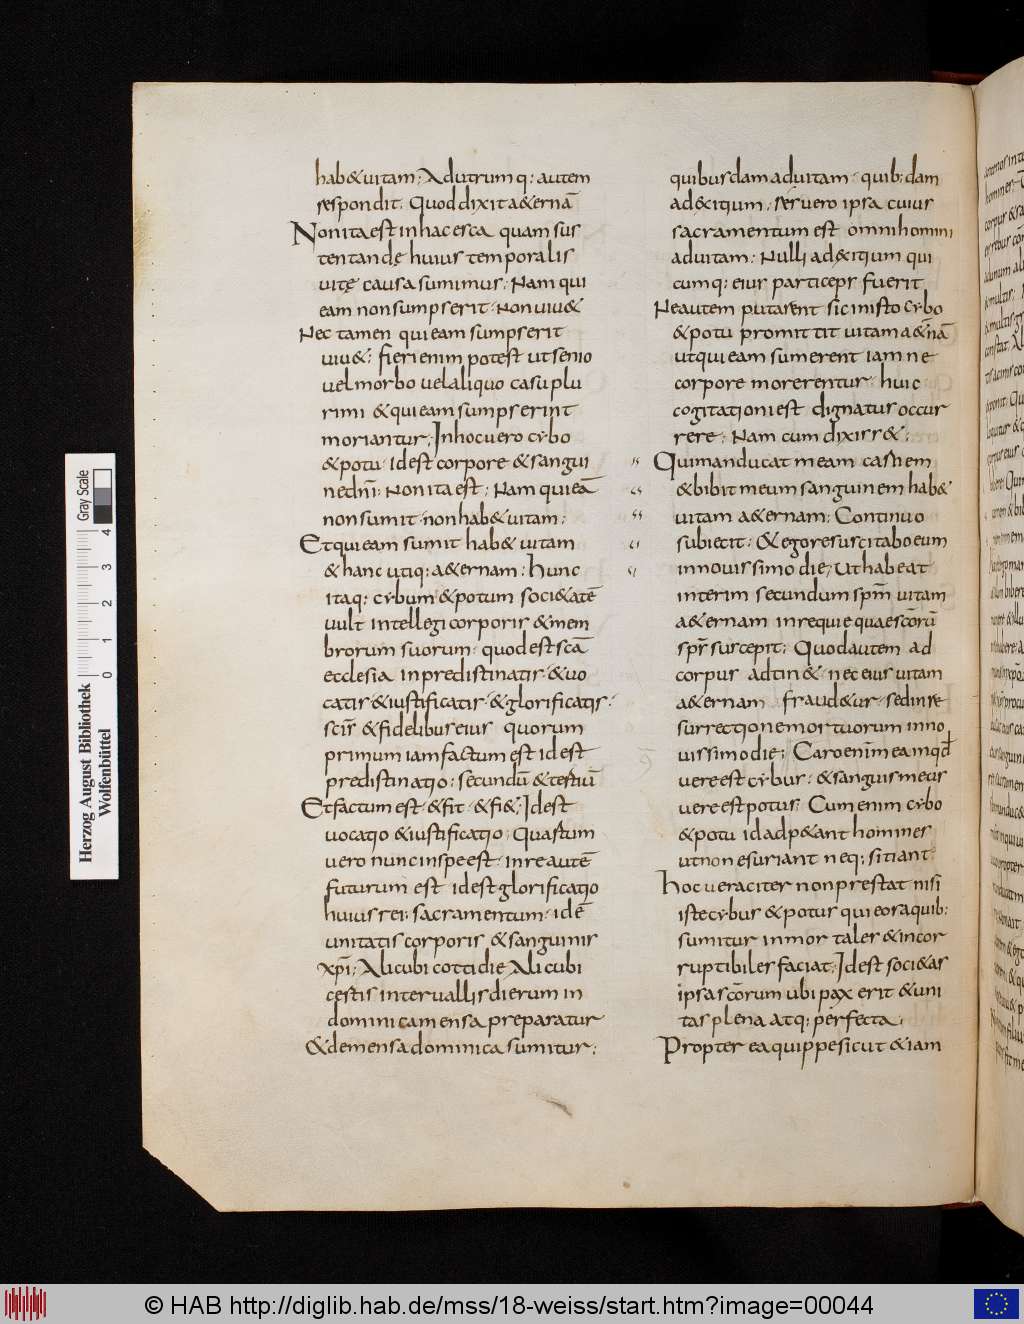 hab&uitam; Adutrumq: autem
respondit; Quod dixit a&ernā
Non ita est in hac esca quam sus
tentandę huius temporalis
uitę causa sumimus; Nam qui
eam non sumpserit; Non uiu&
Nec tamen qui eam sumpserit
uiu&; fieri enim potest ut senio
uel morbo uel aliquo casu plu
rimi & qui eam sumpserint
moriantur; In hoc uero cybo
& potu; id est corpore & sangui
ne dn̄i; Non ita est; Nam qui eā
non sumit non hab& uitam;
Et qui eam sumit hab& uitam
& hanc utiq: a&ernam; hunc
itaq: cybum & potum soci&atē
uult intellegi corporis & mem
brorum suorum; quod est scā
ecclesia in predistinatis & uo
catis & iustificatis & glorificatis
scīs & fidelibus eius quorum
primum iam factum est id est
predistinatio; secundū & tertiū
Et factum est & fit & fi&; Id est
uocatio & iustificatio; Quartum
uero nunc in spe est; in re autē
futurum est id est glorificatio
huius rei; sacramentum; id ē
unitatis corporis & sanguinis
xpī; Alicubi cottidie Alicubi
certis interuallis dierum in
dominica mensa preparatur
& de mensa dominica sumitur;
quibusdam ad uitam quib;dam
ad &xitium; res uero ipsa cuius
sacramentum est omni homini
ad uitam; Nulli ad &xitium qui
cumq: eius particeps fuerit
Ne autem putarent sic in isto cybo
& potu promittit uitam a&̄nā
ut qui eam sumerent iam ne
corpore morerentur huic
cogitationi est dignatus occur
rere; Nam cum dixiss&;
Qui manducat meam carnem
& bibit meum sanguinem hab&
uitam a&ernam; Continuo
subiecit; & ego resuscitabo eum
in nouissimo die; Ut habeat
interim secundum spm̄ uitam
a&ernam in requie quae sc̄orū
spr̄ suscepit; Quod autem ad
corpus adtin& nec eius uitam
a&ernam fraud&ur sed in re
surrectione mortuorum in no
uissimo die; Caro enim mea inqd̄
uere est cybus; & sanguis meus
uere est potus; Cum enim cybo
& potu id adp&ant homines
ut non esuriant neq; sitiant;
hoc ueraciter non prestat nisi
iste cybus & potus qui eos a quib;
sumitur inmortales & incor
ruptibiles faciat; Id est soci&as
ipsa sc̄orum ubi pax erit & uni
tas plena atq; perfecta;
Propterea quippe sicut & iam
Gray Scale
0 1 2 3 4
Herzog August Bibliothek
Wolfenbüttel
© HAB http://diglib.hab.de/mss/18-weiss/start.htm?image=00044